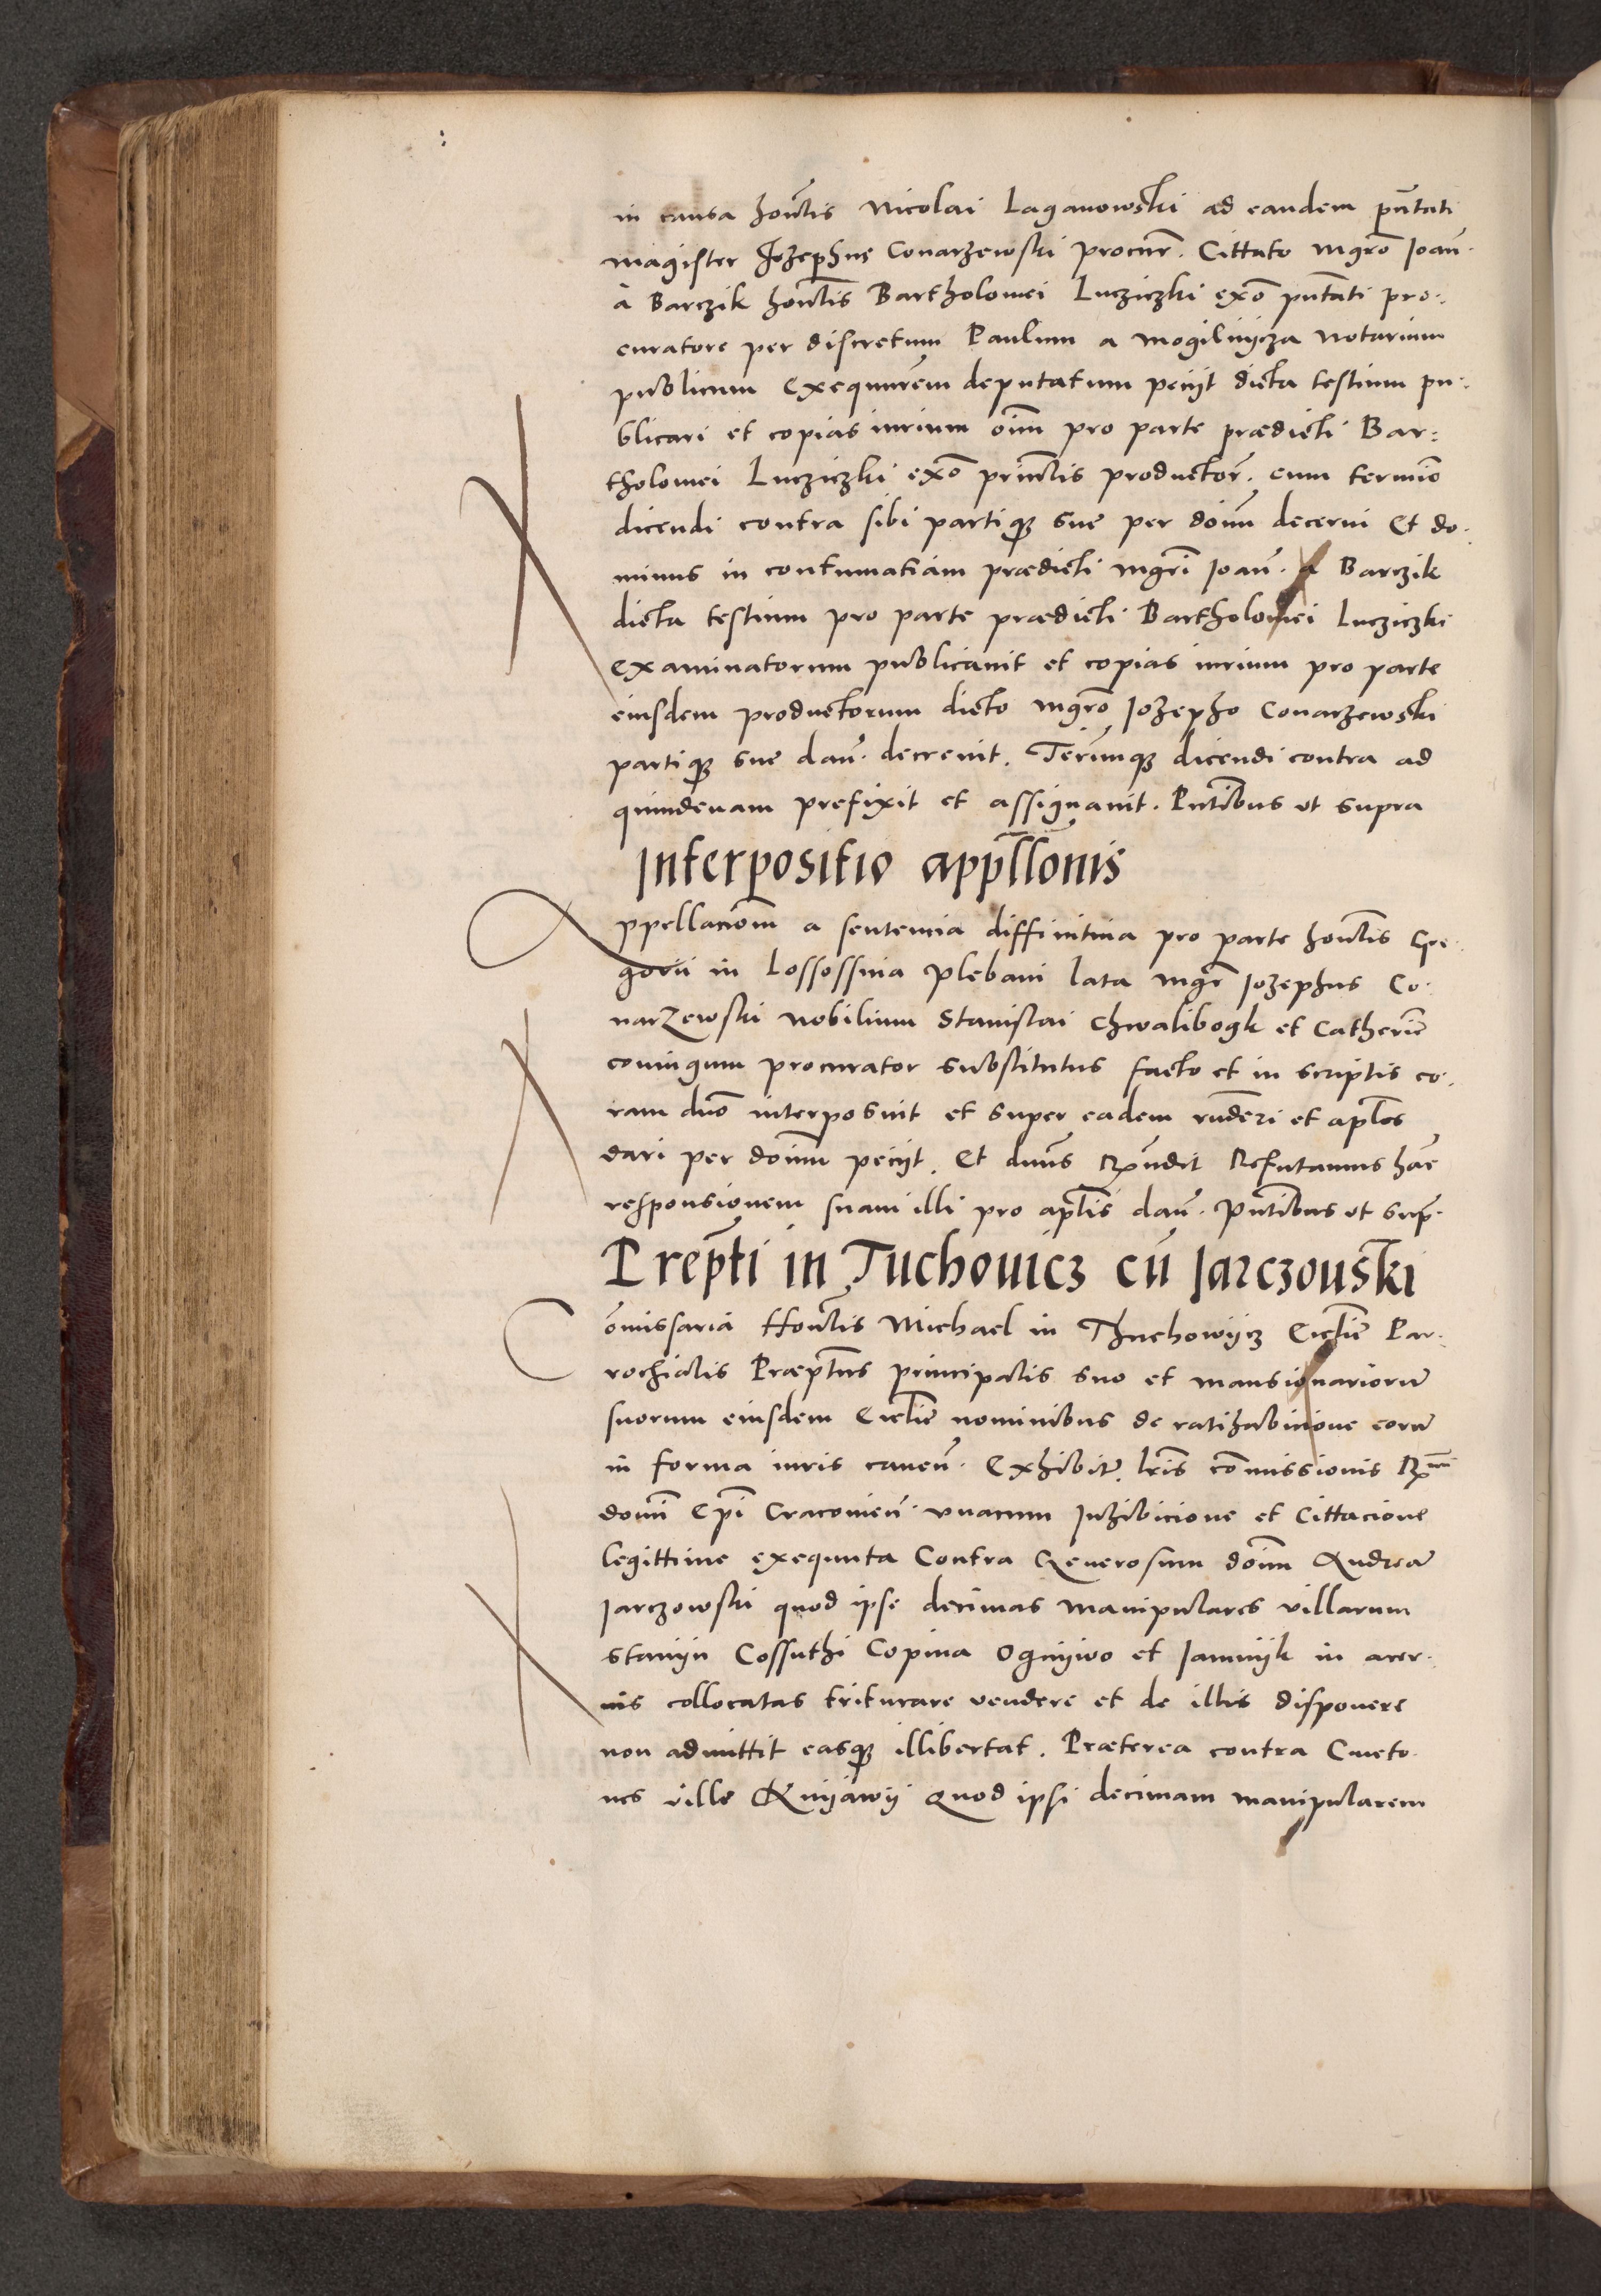 in causa honẽtis Nicolai Laganowski ad eandem pñtati
magister Jozephus Conarzewski procurr̃. Cittato mgrõ Joañ.
à Barczik honẽtis Bartholomei Lucziczki exõ pñtati pro:
curatore per discretum Paulum a Mogilnijcza Notarium
publicum exequutẽm deputatum peciit dicta testium pu:
blicari et copias iurium oĩm pro parte prædicti Bar:
tholomei Lucziczki exõ prinꝉis productor̃. cum termĩo
dicendi contra sibi partiqȝ sue per doĩm decerni Et do.
minus in contumatiam prædicti mgrĩ Joañ. a Barczik
dicta testium pro parte prædicti Bartholomei Lucziczki
examinatorum publicauit et copias iurium pro parte
eiusdem productorum dicto mgrõ Jozepho Conarzewski
partiqȝ sue dañ. decreuit. Termĩumqȝ dicendi contra ad
quindenam prefixit et assignauit. Pñtibus ut supra
Interpositio appꝉꝉonis
ppellacionẽm a sentencia diffinitiua pro parte honẽtis Gre.
gorii in Lossossina Plebani lata mgr̃ Jozephus Co.
narzewski nobilium Stanislai Chwalibogk et Catherinẽ
coniugum procurator substitutus facto et in scriptis co.
ram dnõ interposuit et super eadem rñderi et aplõs
dari per doĩm peciit. Et dnũs Rñdit Refutamus hãc
responsionem suam illi pro aplĩs dañ. Pñtibus ut supr̃.
Prep̃ti in Tuchouicz cũ Jarczouski
õmissaria Honẽtis Michael in Thuchowijcz Eccꝉie Par.
rochialis Præp̃tus principalis suo et mansionariorũ
suorum eiusdem Eccꝉie nominibus de ratihabicione eorũ
in forma iuris caueñ. Exhibitꝭ lr̃is cõmissionis Rᵐⁱ
domĩ Ep̃i Cracouieñ. vnacum Inhibicione et Cittacione
legittime exequuta Contra Generosum doĩm Andreã
Jarczowski quod ipse decimas manipulares villarum
Stanijn Cossuthi Copina Ognijwo et Jamnijk in acer.
uis collocatas triturare vendere et de illis disponere
non admittit easqȝ illibertat. Præterea contra Cmeto.
nes ville Knijawij quod ipsi decimam manipularem